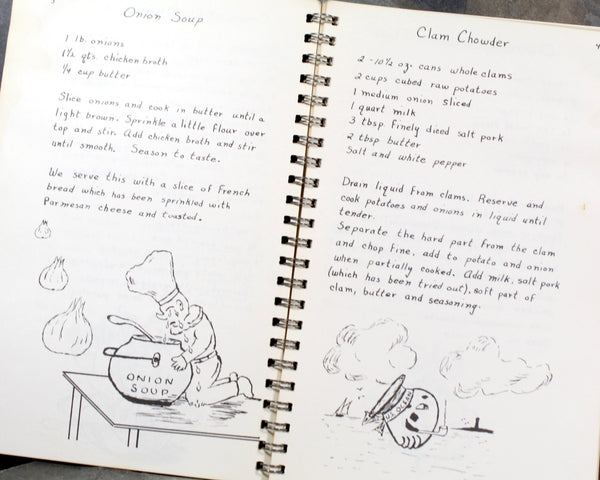 Onion Soup
1 lb. onions
1½ qts. chicken broth
¼ cup butter
Slice onions and cook in butter until a
light brown. Sprinkle a little flour over
top and stir. Add chicken broth and stir
until smooth. Season to taste.
We serve this with a slice of French
bread which has been sprinkled with
Parmesan cheese and toasted.
ONION
SOUP
Clam Chowder
2 - 10½ oz. cans whole clams
2 cups cubed raw potatoes
1 medium onion sliced
1 quart milk
3 tbsp. finely diced salt pork
2 tbsp butter
Salt and white pepper
Drain liquid from clams. Reserve and
cook potatoes and onions in liquid until
tender.
Separate the hard part from the clam
and chop fine, add to potato and onion
when partially cooked. Add milk, salt pork
(which has been tried out), soft part of
clam, butter and seasoning.